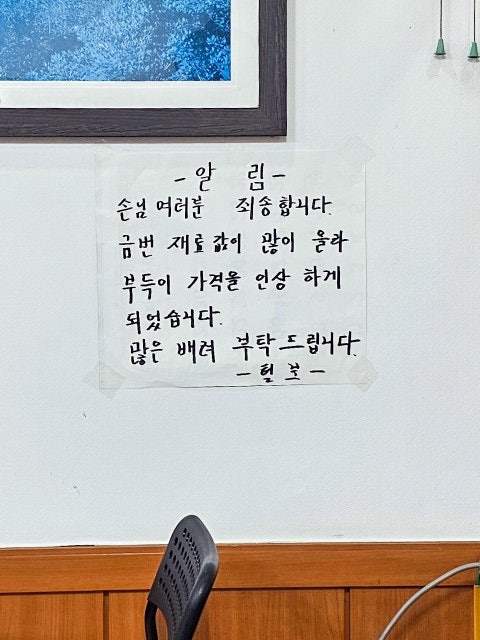 - 알 림 -
손님 여러분 죄송합니다.
금번 재료값이 많이 올라
부득이 가격을 인상 하게
되었습니다.
많은 배려 부탁드립니다.
- 털 보 -